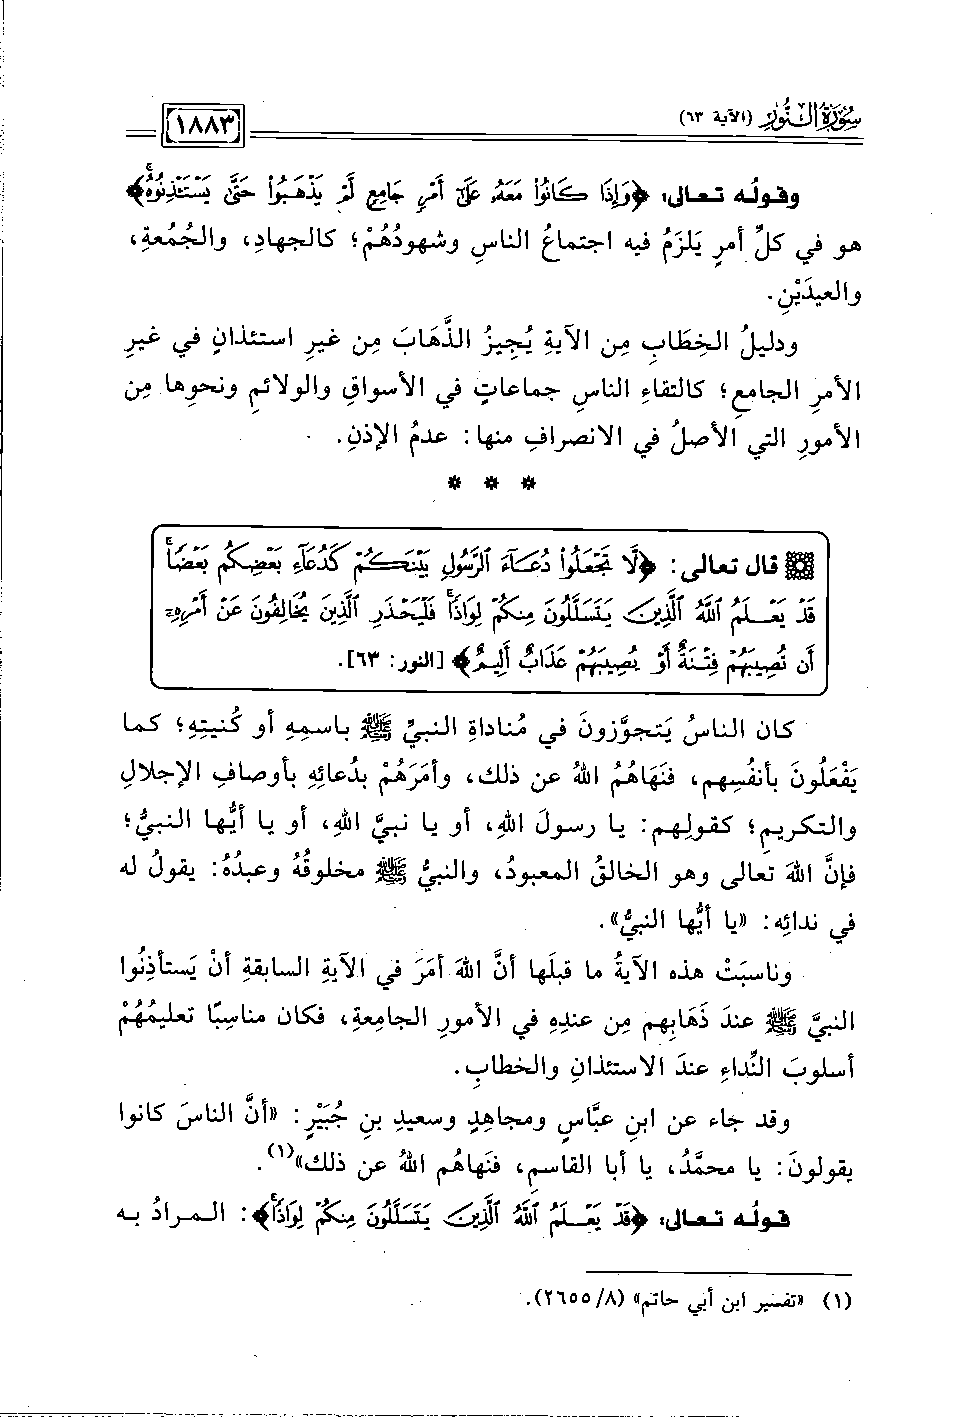 سُورَةُ النُّورِ (الآية ٦٣)
١٨٨٣
وقولُه تعالى: ﴿وَإِذَا كَانُوا مَعَهُ عَلَىٰ أَمْرٍ جَامِعٍ لَمْ يَذْهَبُوا حَتَّىٰ يَسْتَـْٔذِنُوهُ﴾
هو في كلِّ أمرٍ يَلزَمُ فيه اجتماعُ الناسِ وشهودُهُمْ؛ كالجهادِ، والجُمُعةِ،
والعيدَيْنِ.
ودليلُ الخِطَابِ مِن الآيةِ يُجِيزُ الذَّهَابَ مِن غيرِ استئذانٍ في غيرِ
الأمرِ الجامعِ؛ كالتقاءِ الناسِ جماعاتٍ في الأسواقِ والولائمِ ونحوِها مِن
الأمورِ التي الأصلُ في الانصرافِ منها: عدمُ الإذنِ.
* * *
قال تعالى: ﴿لَّا تَجْعَلُوا دُعَآءَ ٱلرَّسُولِ بَيْنَكُمْ كَدُعَآءِ بَعْضِكُم بَعْضًا
قَدْ يَعْلَمُ ٱللَّهُ ٱلَّذِينَ يَتَسَلَّلُونَ مِنكُمْ لِوَاذًا فَلْيَحْذَرِ ٱلَّذِينَ يُخَالِفُونَ عَنْ أَمْرِهِۦٓ
أَن تُصِيبَهُمْ فِتْنَةٌ أَوْ يُصِيبَهُمْ عَذَابٌ أَلِيمٌ﴾ [النور: ٦٣].
كان الناسُ يَتجوَّزونَ في مُناداةِ النبيِّ ﷺ باسمِهِ أو كُنيتِهِ؛ كما
يَفْعَلُونَ بأنفُسِهم، فنَهَاهُمُ اللهُ عن ذلك، وأمَرَهُمْ بدُعائِهِ بأوصافِ الإجلالِ
والتكريمِ؛ كقولِهم: يا رسولَ اللهِ، أو يا نبيَّ اللهِ، أو يا أيُّها النبيُّ؛
فإنَّ اللهَ تعالى وهو الخالقُ المعبودُ، والنبيُّ ﷺ مخلوقُهُ وعبدُهُ: يقولُ له
في ندائِه: «يا أيُّها النبيُّ».
وناسبَتْ هذه الآيةُ ما قبلَها أنَّ اللهَ أمَرَ في الآيةِ السابقةِ أنْ يَستأذِنُوا
النبيَّ ﷺ عندَ ذَهَابِهم مِن عندِهِ في الأمورِ الجامعةِ، فكان مناسِبًا تعليمُهُمْ
أسلوبَ النِّداءِ عندَ الاستئذانِ والخطابِ.
وقد جاء عن ابنِ عبَّاسٍ ومجاهدٍ وسعيدِ بنِ جُبَيْرٍ: «أنَّ الناسَ كانوا
يقولونَ: يا محمَّدُ، يا أبا القاسمِ، فنَهاهُم اللهُ عن ذلك»(١).
قولُه تعالى: ﴿قَدْ يَعْلَمُ ٱللَّهُ ٱلَّذِينَ يَتَسَلَّلُونَ مِنكُمْ لِوَاذًا﴾: المرادُ به
(١) «تفسير ابن أبي حاتم» (٨/ ٢٦٥٥).